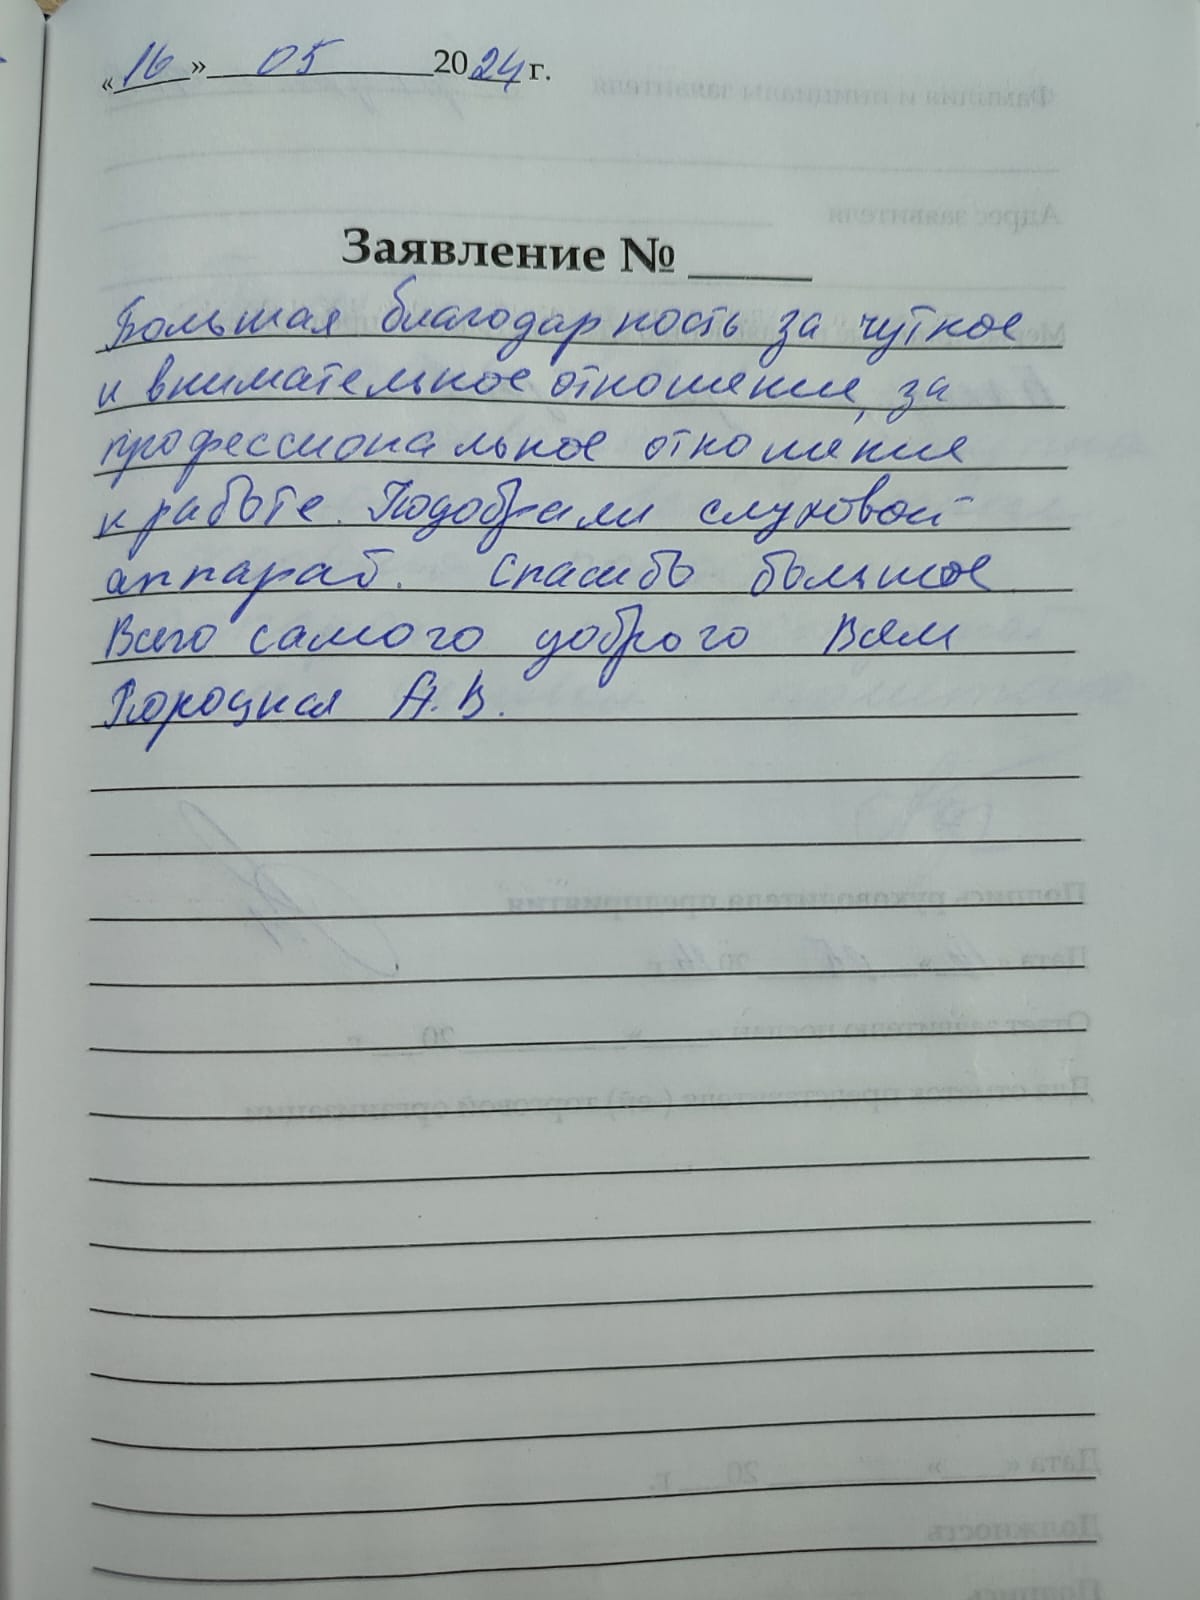 «16» 05 2024 г.
Заявление №
Большая благодарность за чуткое
и внимательное отношение, за
профессиональное отношение
к работе. Подобрали слуховой
аппарат. Спасибо большое
Всего самого доброго Вам
А.В.